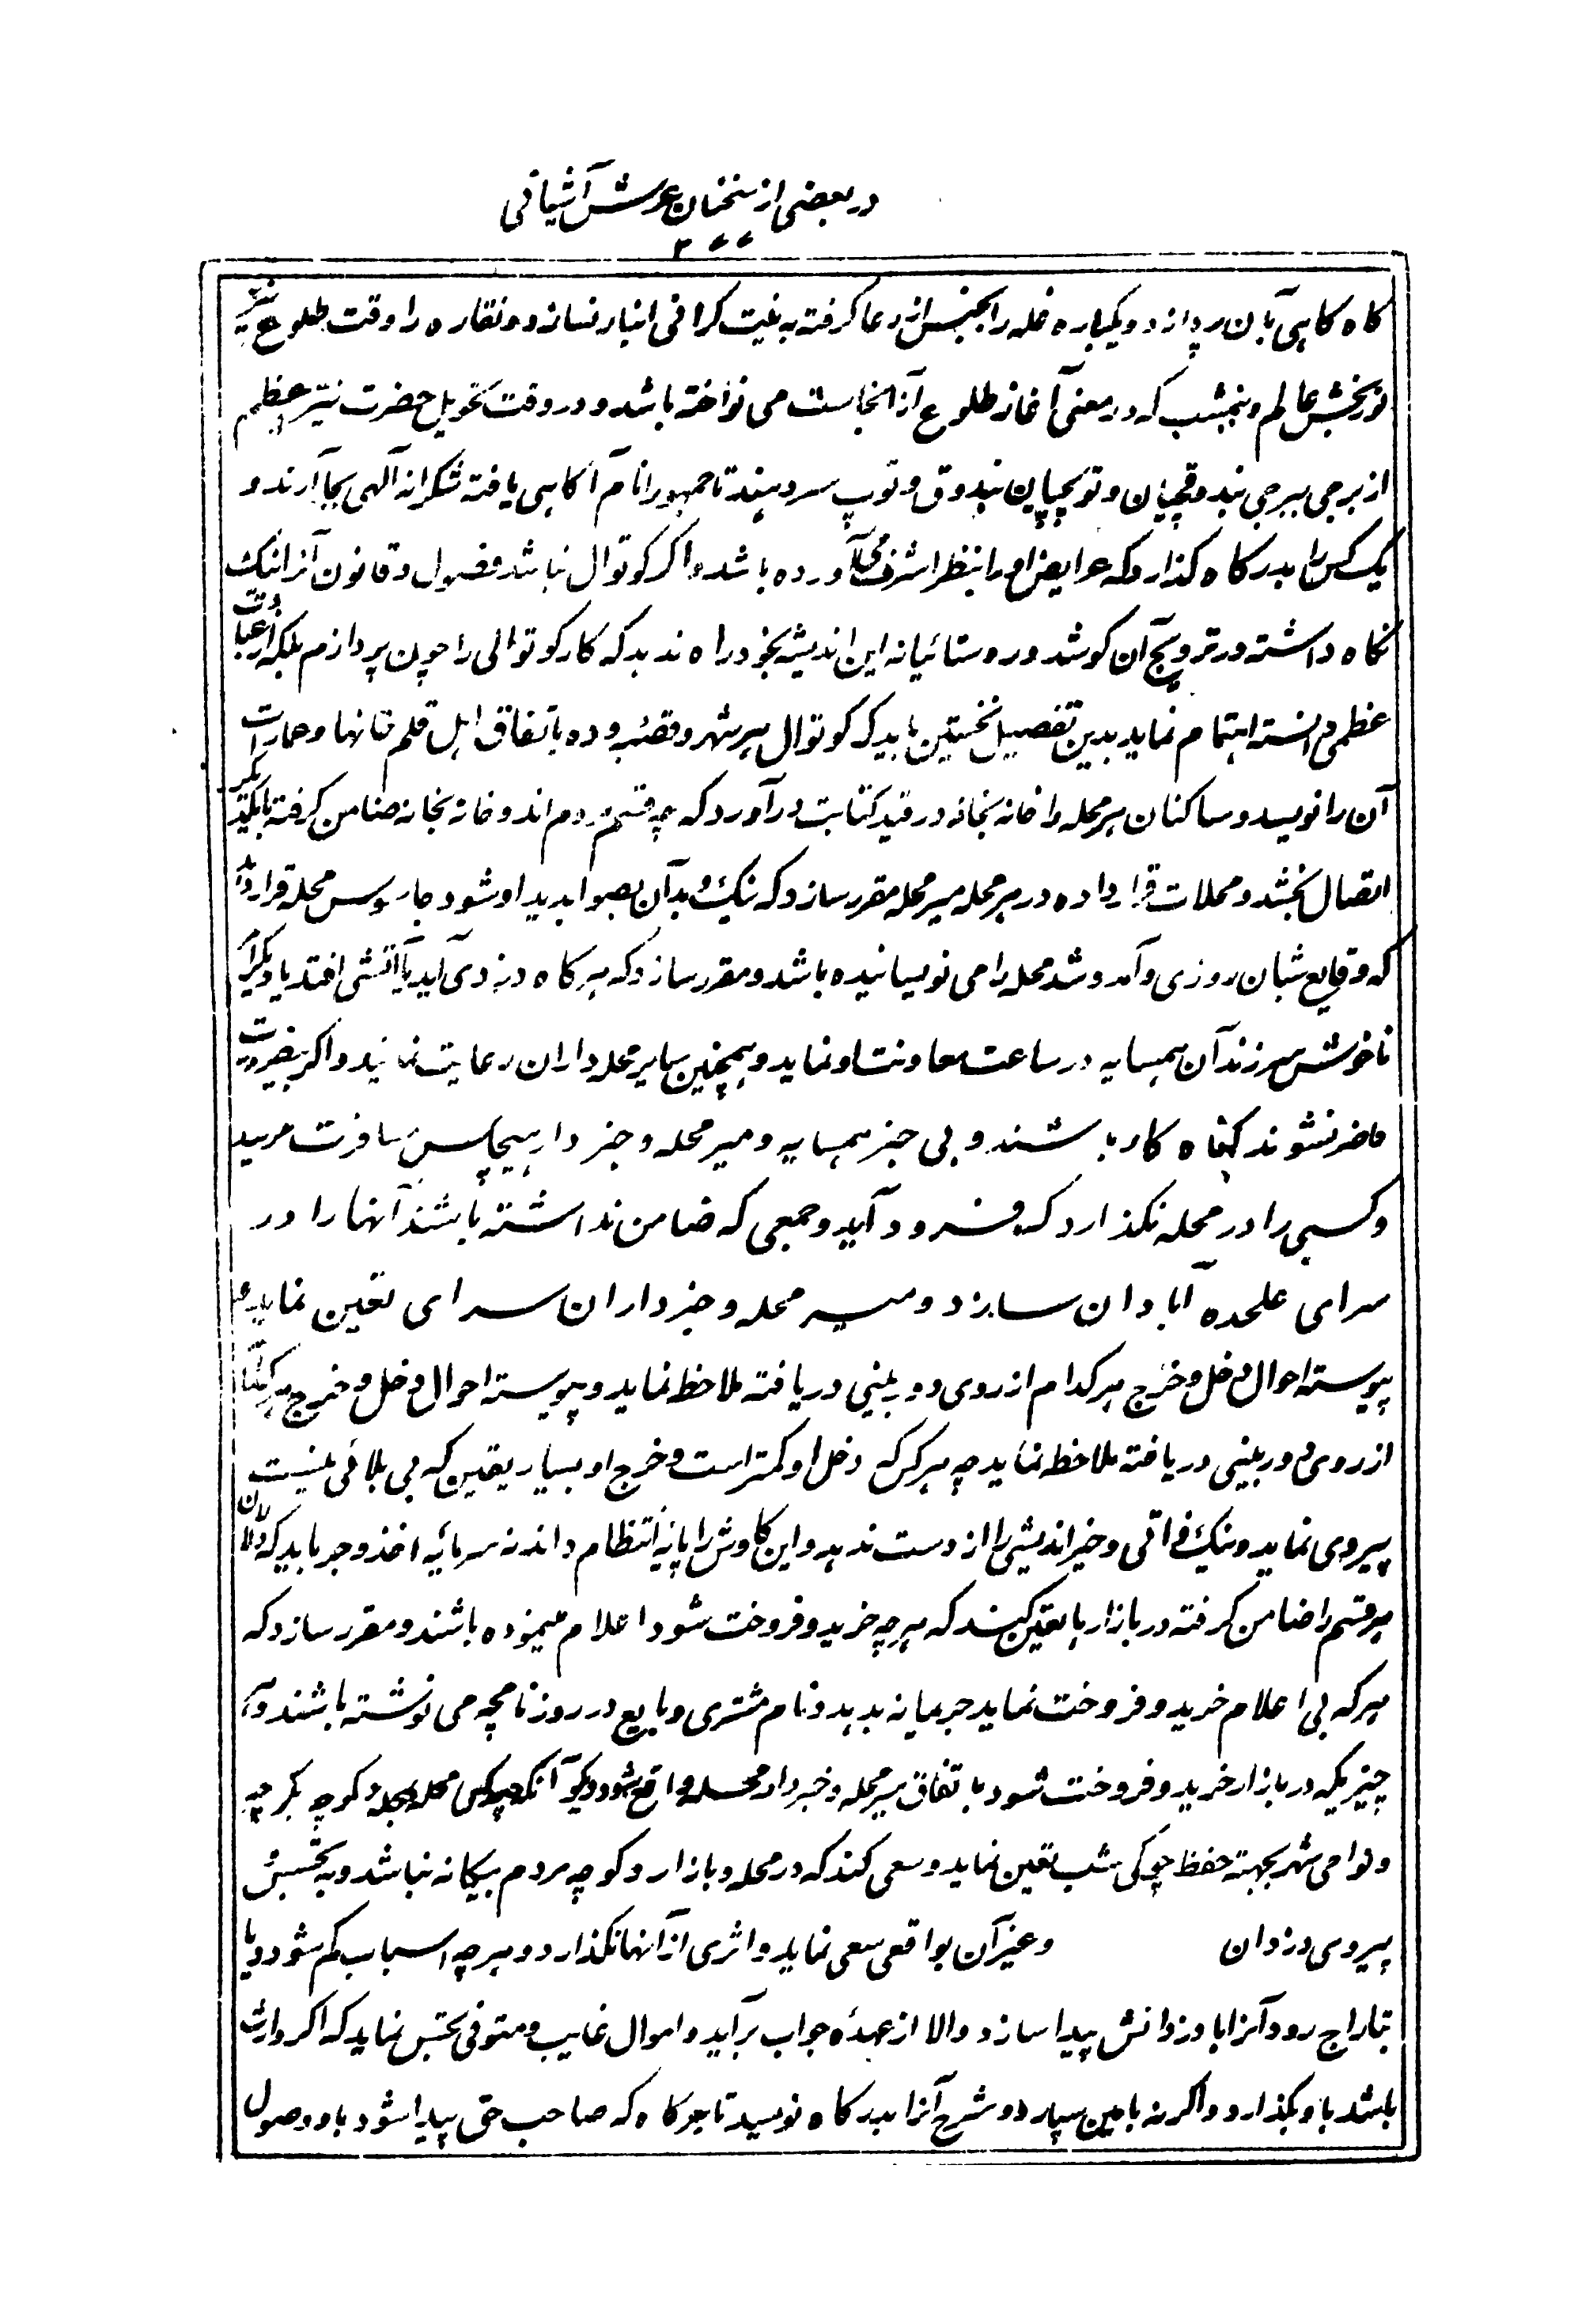 در بعضی از سخنان عرش آشیانی
۳۶۶
کاه کاهی بآن پردازد و یکباره غله را بجنس از رعا کرفته به نیت کرانی انبار نسازد و نقاره را وقت طلوع نیر
نور بخش عالم و نیمشب که در معنی آغاز طلوع از انجاست می نواخته باشد و در وقت تحویل حضرت نیر عظیم
از برجی ببرجی بندوقچیان و توپچیان بندوق و توپ سر دهند تا جمهور انام آکاهی یافته شکرانه آلهی بجا آرند و
یک کس را بدرکاه کذارد که عرایض او را بنظر اشرف می آورده باشد و اکر کوتوال نباشد فصول و قانون آنرا نیک
نکاه داشته در ترویج آن کوشد و روستائیانه این اندیشه بخود راه ندهد که کار کوتوالی را چون پردازم بلکه از عبادت
عظمی دانسته اهتمام نماید بدین تفصیل نخستین باید که کوتوال هر شهر و قصبه و ده باتفاق اهل قلم خانها و عمارات
آن را نویسد و ساکنان هر محله را خانه بخانه در قید کتابت در آورد که چه قسم مردم اند و خانه بخانه ضامن کرفته با یکدیکر
اتصال بخشد و محلات قرار داده در هر محله میر محله مقرر سازد که نیک و بد آن بصوابدید او شود جاسوس محله قرار دهد
که وقایع شبان روزی و آمد و شد محله را می نویسانیده باشد و مقرر سازد که هر کاه دزدی آید یا آتشی افتد یا دیکر امر
ناخوش سر زند آن همسایه در ساعت معاونت او نماید و همچنین سایر محله داران رعایت نمایند و اکر بضرورت
حاضر نشوند کناه کار باشند و بی خبر همسایه و میر محله و خبر دار هیچکس مسافرت
و کسی را در محله نکذارد که فرود آید و جمعی که ضامن نداشته باشند آنها را در
سرای علحده آبادان سازد و میر محله و خبرداران سرای تعین نماید و
پیوسته احوال دخل و خرج هر کدام از روی دوربینی دریافته ملاحظه نماید و پیوسته احوال دخل و خرج هر
از روی دوربینی دریافته ملاحظه نماید چه هر کس که دخل او کمتر است و خرج او بسیار یقین که بی بلائی نیست
پیروی نماید و نیک ذاتی و خیر اندیشی را از دست ندهد و این کاوش را پایه انتظام داند نه سرمایه اخذ و جر باید که دلالان
هر قسم را ضامن کرفته در بازار ها تعین کند که هر چه خرید و فروخت شود اعلام مینموده باشند و مقرر سازد که
هر که بی اعلام خرید و فروخت نماید جرمیانه بدهد و نام مشتری و بایع در روزنامچه می نوشته باشند و هر
چیزیکه در بازار خرید و فروخت شود باتفاق میر محله و خبردار محله واقع شود دیکر آنکه محله بمحله و کوچه بکوچه
و نواحی شهر بجهته حفظ چوکی شب تعین نماید و سعی کند که در محله و بازار و کوچه مردم بیکانه نباشد و بتجسس و
پیروی دزدان و غیر آن بواقعی سعی نماید و اثری از آنها نکذارد و هر چه اسباب کم شود و یا
بتاراج رود آنرا با دزدانش پیدا سازد و الا از عهده جواب برآید و اموال غایب و متوفی تجسس نماید که اکر وارث
باشد باو بکذارد و اکر نه بامین سپارد و شرح آنرا بدرکاه نویسد تا هر کاه که صاحب حق پیدا شود باو وصول